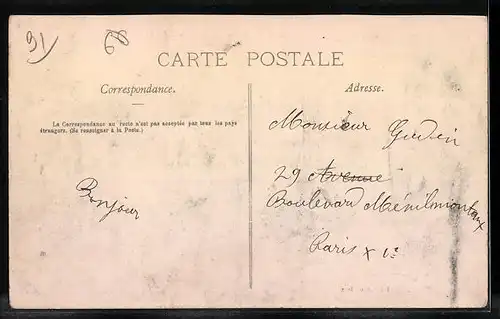 91
68
CARTE POSTALE
Correspondance.
Adresse.
La Correspondance au recto n'est pas acceptée par tous les pays
étrangers. (Se renseigner à la Poste.)
Bonjour
Monsieur
29 Avenue
Boulevard Ménilmontant
Paris